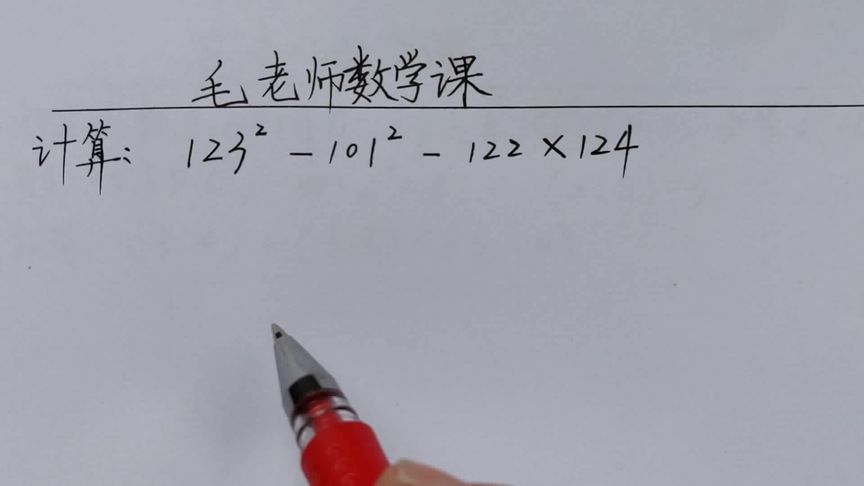 毛老师数学课
计算: 123² - 101² - 122×124